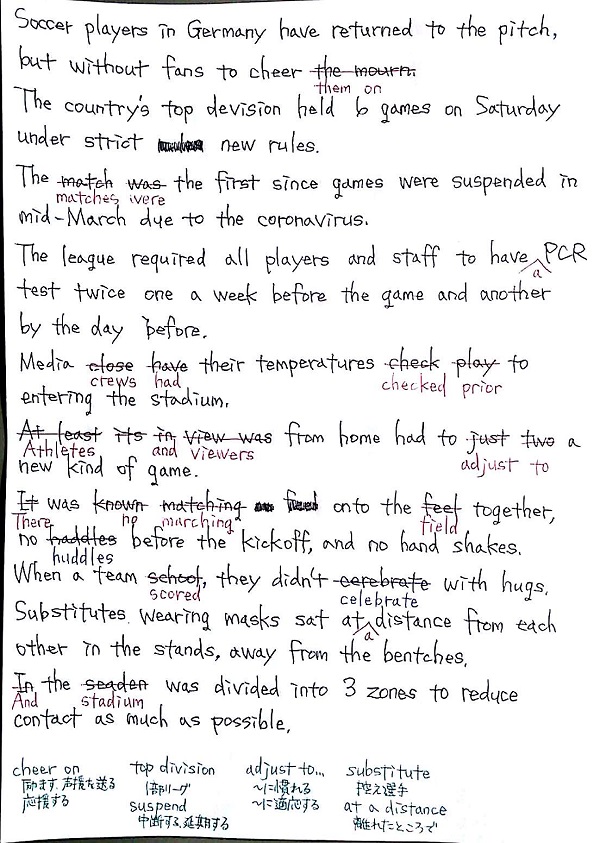 Soccer players in Germany have returned to the pitch,
but without fans to cheer the mourn.
them on
The country's top devision held 6 games on Saturday
under strict new rules.
The match was the first since games were suspended in
matches were
mid-March due to the coronavirus.
The league required all players and staff to have PCR
a
test twice one a week before the game and another
by the day before.
Media close have their temperatures check play to
crews had checked prior
entering the stadium.
At least its in view was from home had to just two a
Athletes and viewers adjust to
new kind of game.
It was known matching onto the feet together,
There no marching field
no haddles before the kickoff, and no hand shakes.
huddles
When a team school, they didn't cerebrate with hugs.
scored celebrate
Substitutes wearing masks sat at distance from each
a
other in the stands, away from the bentches.
In the seaden was divided into 3 zones to reduce
And stadium
contact as much as possible.
cheer on top division adjust to... substitute
励ます、声援を送る 1部リーグ ~に慣れる 控え選手
応援する suspend ~に適応する at a distance
中断する、延期する 離れたところで